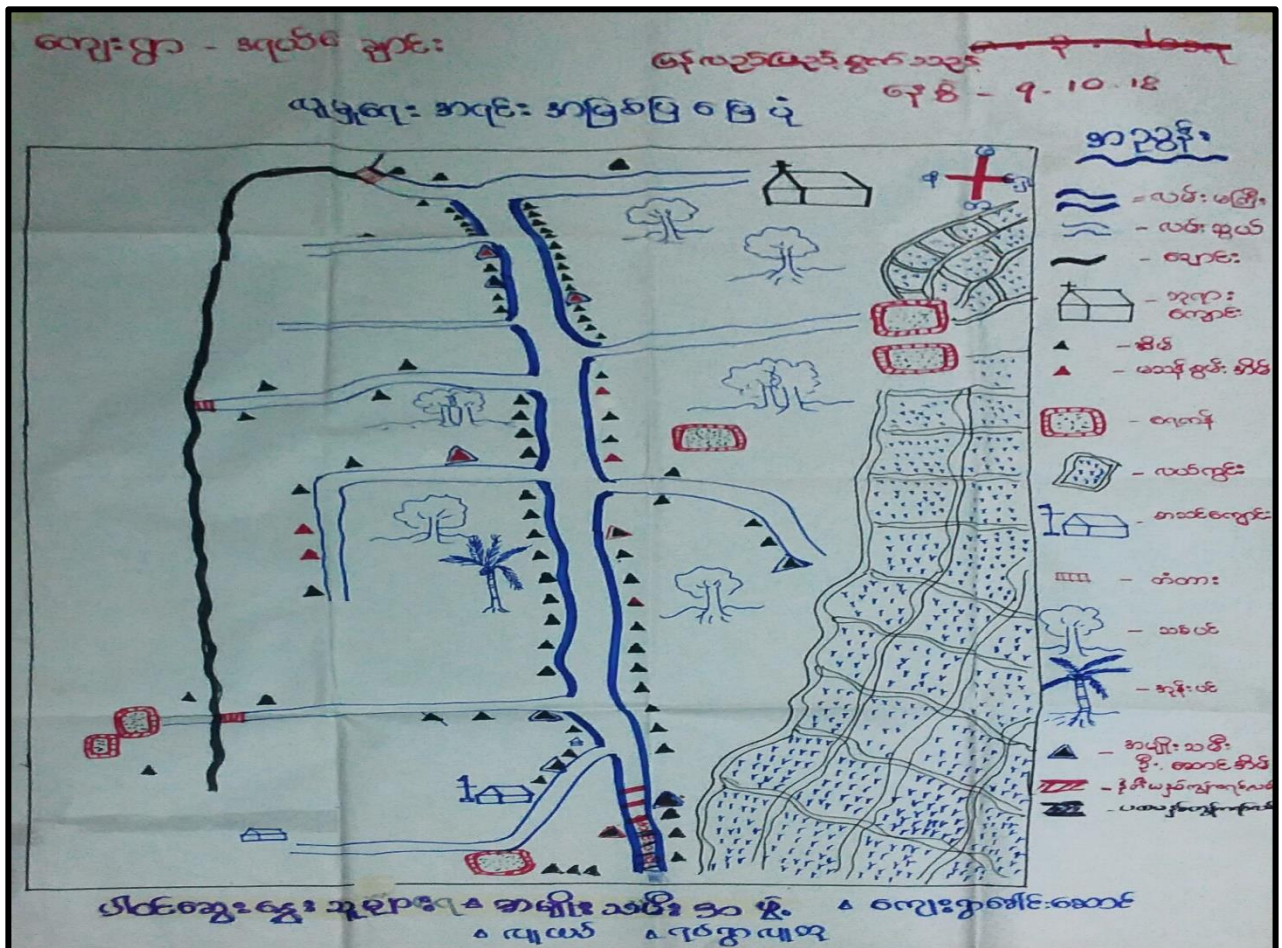 ကျေးရွာ - ချောင်း
မြန်လည်ပြည့်စွက်သည့်
နေ့စွဲ - 9.10.18
လူမှုရေး အရင်း အမြစ်ပြ မြေပုံ
အညွှန်း
= လမ်းမကြီး
- လမ်းသွယ်
- ချောင်း
- ဘုရား
ကျောင်း
- အိမ်
- မသန်စွမ်းအိမ်
- ရေကန်
- လယ်ကွင်း
1 - စာသင်ကျောင်း
- တံတား
- သစ်ပင်
- အုန်းပင်
- အမျိုးသမီး
ဦးဆောင်အိမ်
1
ပါဝင်ဆွေးနွေးသူများ အမျိုးသမီး ကျေးရွာခေါင်းဆောင်
လူငယ် ရပ်ရွာလူထု